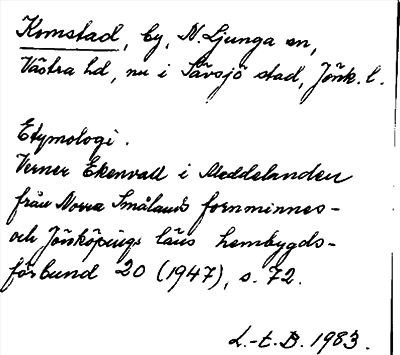 Komstad, by, N. Ljunga sn,
Västra hd, nu i Sävsjö stad, Jönk. l.
Etymologi.
Verner Ekenvall i Meddelanden
från Norra Smålands fornminnes-
och Jönköpings läns hembygds-
förbund 20 (1947), s. 72.
L.-E. B. 1983.